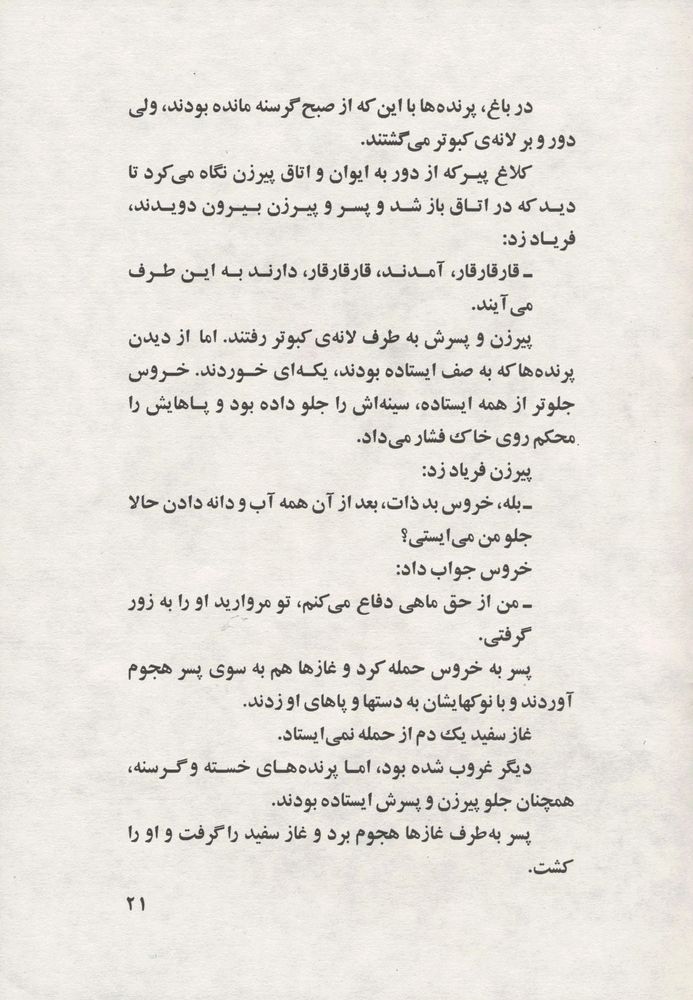 در باغ، پرنده‌ها با این که از صبح گرسنه مانده بودند، ولی
دور و بر لانه‌ی کبوتر می‌گشتند.
کلاغ پیر که از دور به ایوان و اتاق پیرزن نگاه می‌کرد تا
دید که در اتاق باز شد و پسر و پیرزن بیرون دویدند،
فریاد زد:
ـ قارقارقار، آمدند، قارقارقار، دارند به این طرف
می‌آیند.
پیرزن و پسرش به طرف لانه‌ی کبوتر رفتند. اما از دیدن
پرنده‌ها که به صف ایستاده بودند، یکه‌ای خوردند. خروس
جلوتر از همه ایستاده، سینه‌اش را جلو داده بود و پاهایش را
محکم روی خاک فشار می‌داد.
پیرزن فریاد زد:
ـ بله، خروس بد ذات، بعد از آن همه آب و دانه دادن حالا
جلو من می‌ایستی؟
خروس جواب داد:
ـ من از حق ماهی دفاع می‌کنم، تو مروارید او را به زور
گرفتی.
پسر به خروس حمله کرد و غازها هم به سوی پسر هجوم
آوردند و با نوکهایشان به دستها و پاهای او زدند.
غاز سفید یک دم از حمله نمی‌ایستاد.
دیگر غروب شده بود، اما پرنده‌های خسته و گرسنه،
همچنان جلو پیرزن و پسرش ایستاده بودند.
پسر به‌طرف غازها هجوم برد و غاز سفید را گرفت و او را
کشت.
۲۱